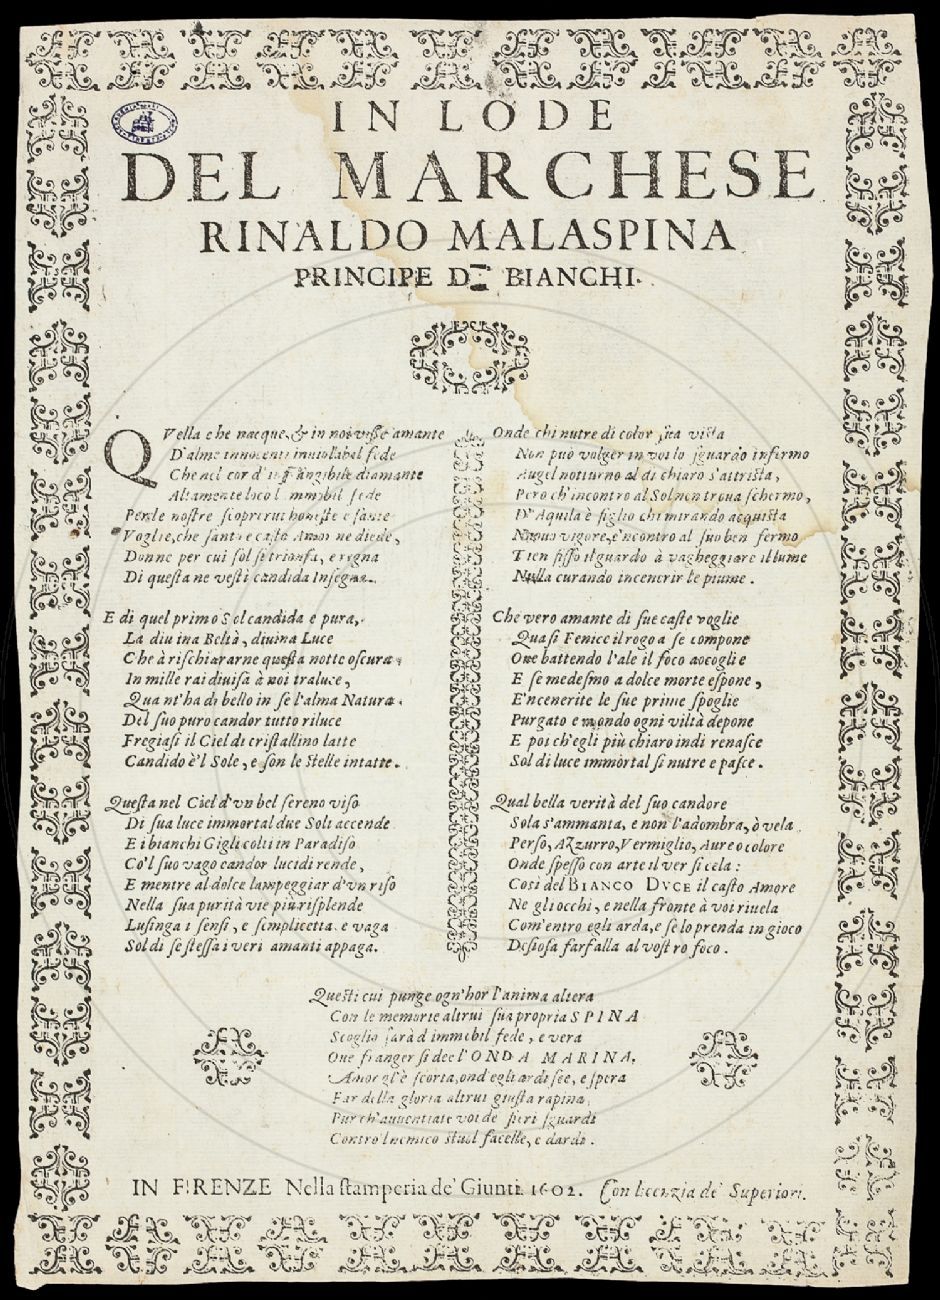 IN LODE
DEL MARCHESE
RINALDO MALASPINA
PRINCIPE DE BIANCHI.
QVella che nacque, & in noi visse amante
D'alme innocenti inuiolabel fede
Che nel cor d'infrangibile diamante
Altamente locò immobil fede
Per le nostre scoprirui honeste e sante
Voglie, che santi e casto Amor ne diede,
Donne per cui sol si trionfa, e regna
Di questa ne vestì candida Insegna.
E di quel primo Sol candida e pura,
La diuina Beltà, diuina Luce
Che à rischiararne questa notte oscura,
In mille rai diuisa à noi traluce,
Quant'ha di bello in se l'alma Natura.
Del suo puro candor tutto riluce
Fregiasi il Ciel di cristallino latte
Candido è'l Sole, e son le Stelle intatte.
Questa nel Ciel d'vn bel sereno viso
Di sua luce immortal due Soli accende
E i bianchi Gigli colti in Paradiso
Co'l suo vago candor lucidi rende,
E mentre al dolce lampeggiar d'vn riso
Nella sua purità vie più risplende
Lusinga i sensi, e semplicetta e vaga
Sol di se stessa i veri amanti appaga.
Onde chi nutre di color sua vista
Non può volger in voi lo sguardo infermo
Augel notturno al di chiaro s'attrista,
Pero ch'incontro al Sol non troua schermo,
D'Aquila è figlio chi mirando acquista
Nuouo vigore, e'ncontro al suo ben fermo
Tien fisso il guardo à vagheggiare il lume
Nulla curando incenerir le piume.
Che vero amante di sue caste voglie
Quasi Fenice il rogo a se compone
Oue battendo l'ale il foco accoglie
E se medesmo a dolce morte espone,
E'ncenerite le sue prime spoglie
Purgato e mondo ogni viltà depone
E poi ch'egli più chiaro indi renasce
Sol di luce immortal si nutre e pasce.
Qual bella verità del suo candore
Sola s'ammanta, e non l'adombra, ò vela
Perso, Azzurro, Vermiglio, Aureo colore
Onde spesso con arte il ver si cela:
Cosi del BIANCO DVCE il casto Amore
Ne gli occhi, e nella fronte à voi riuela
Com'entro egli arda, e se lo prenda in gioco
Desiosa farfalla al vostro foco.
Questi cui punge ogn'hor l'anima altera
Con le memorie altrui sua propria SPINA
Scoglio sarà d'immobil fede, e vera
Oue franger si dee l'ONDA MARINA,
Amor gl'è scorta, ond'egli ardisce, e spera
Far della gloria altrui giusta rapina,
Pur ch'auuentiate voi de' fieri sguardi
Contro'l nemico stuol facelle, e dardi.
IN FIRENZE Nella stamperia de' Giunti. 1602. Con licenzia de' Superiori.